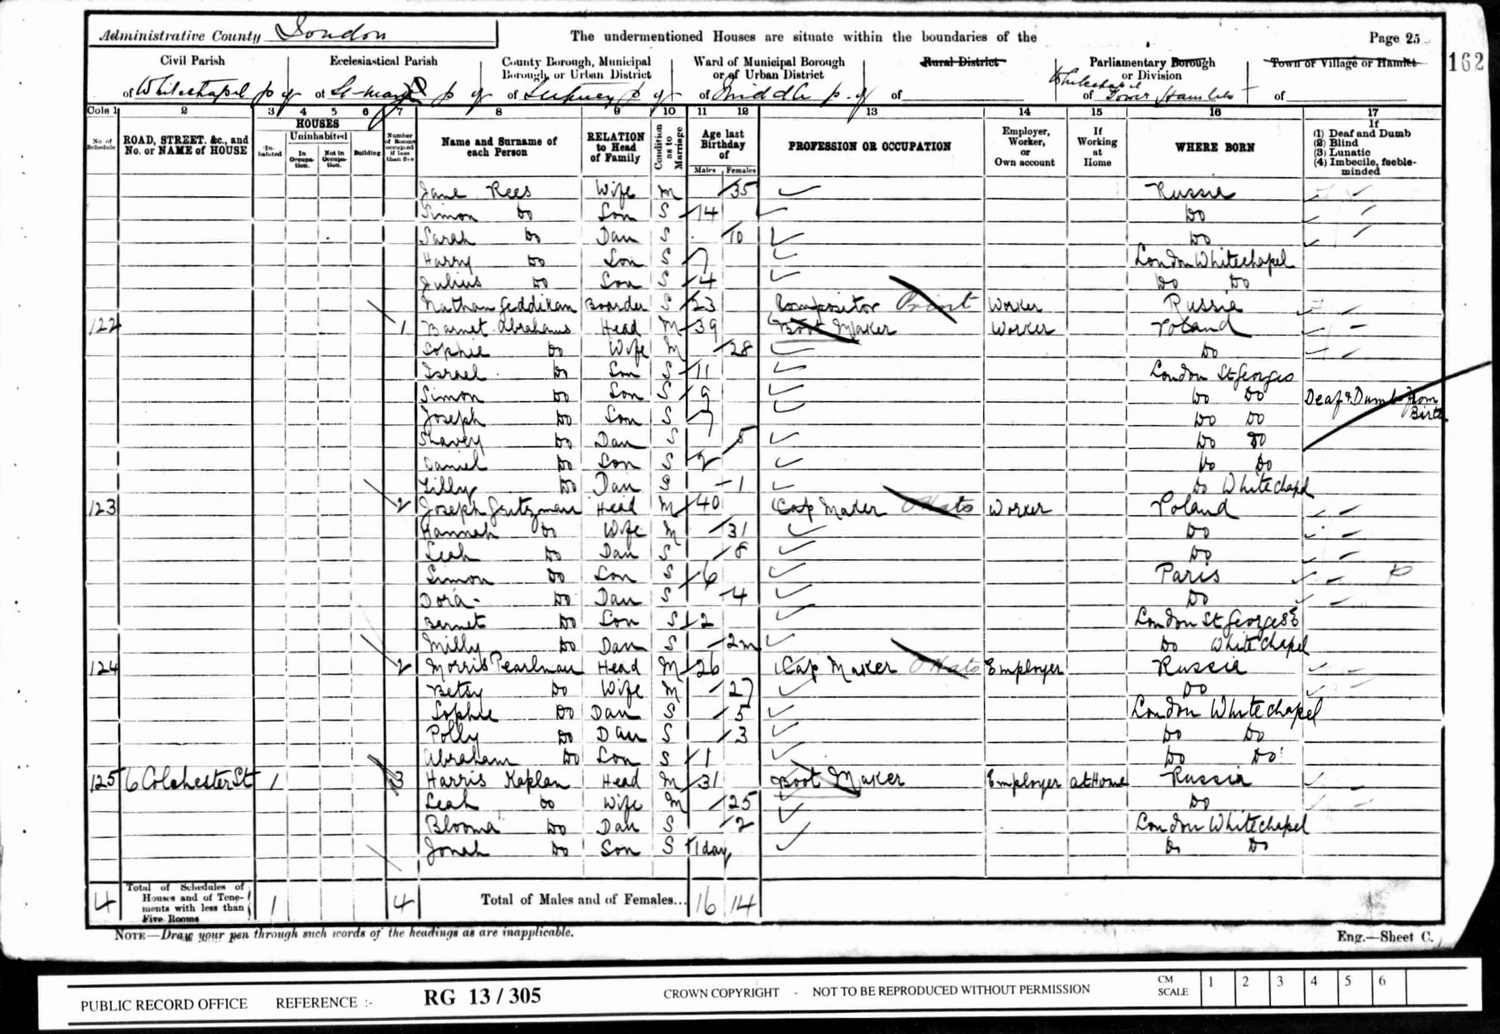 Administrative County London
The undermentioned Houses are situate within the boundaries of the
Page 25
162
Civil Parish
of Whitechapel p of
Ecclesiastical Parish
of St Mary p of
County Borough, Municipal Borough, or Urban District
of Stepney p of
Ward of Municipal Borough or of Urban District
of Middle p. of
Rural District
of
Parliamentary Borough or Division
of Whitechapel Tower Hamlets
Town or Village or Hamlet
of
Cols 1 2 3 4 5 6 7 8 9 10 11 12 13 14 15 16 17
No. of Schedule
ROAD, STREET, &c., and No. or NAME of HOUSE
HOUSES
Inhabited
Uninhabited
In Occupation.
Not in Occupation.
Building
Number of Rooms occupied if less than five
Name and Surname of each Person
RELATION to Head of Family
Condition as to Marriage
Age last Birthday of
Males Females
PROFESSION OR OCCUPATION
Employer, Worker, or Own account
If Working at Home
WHERE BORN
If
(1) Deaf and Dumb
(2) Blind
(3) Lunatic
(4) Imbecile, feeble-minded
Jane Rees Wife M 35 Russia
Simon Do Son S 14 Do
Sarah Do Dau S 10 Do
Harry Do Son S 7 London Whitechapel
Julius Do Son S 4 Do Do
Nathan Boarder S 23 Compositor Print Worker Russia
122 1 Barnet Abrahams Head M 39 Boot Maker Worker Poland
Sophie Do Wife M 28 Do
Israel Do Son S 11 London St Georges
Simon Do Son S 9 Do Do Deaf & Dumb from Birth
Joseph Do Son S 7 Do Do
Do Dau S 5 Do Do
Daniel Do Son S 2 Do Do
Lilly Do Dau S 1 Do Whitechapel
123 2 Joseph Head M 40 Cap Maker Hats Worker Poland
Hannah Do Wife M 31 Do
Leah Do Dau S 8 Do
Simon Do Son S 6 Paris
Dora Do Dau S 4 Do
Barnet Do Son S 2 London St Georges E
Milly Do Dau S 2m Do Whitechapel
124 2 Morris Pearlman Head M 26 Cap Maker Hats Employer Russia
Betsy Do Wife M 27 Do
Sophie Do Dau S 5 London Whitechapel
Polly Do Dau S 3 Do Do
Abraham Do Son S 1 Do Do
125 6 Colchester St 1 3 Harris Kaplan Head M 31 Boot Maker Employer at Home Russia
Leah Do Wife M 25 Do
Blooma Do Dau S 2 London Whitechapel
Jonah Do Son S 1 day Do Do
4 Total of Schedules of Houses and of Tenements with less than Five Rooms 1 4 Total of Males and of Females... 16 14
NOTE—Draw your pen through such words of the headings as are inapplicable.
Eng.—Sheet C.
PUBLIC RECORD OFFICE REFERENCE :- RG 13/305 CROWN COPYRIGHT - NOT TO BE REPRODUCED WITHOUT PERMISSION
CM SCALE 1 2 3 4 5 6